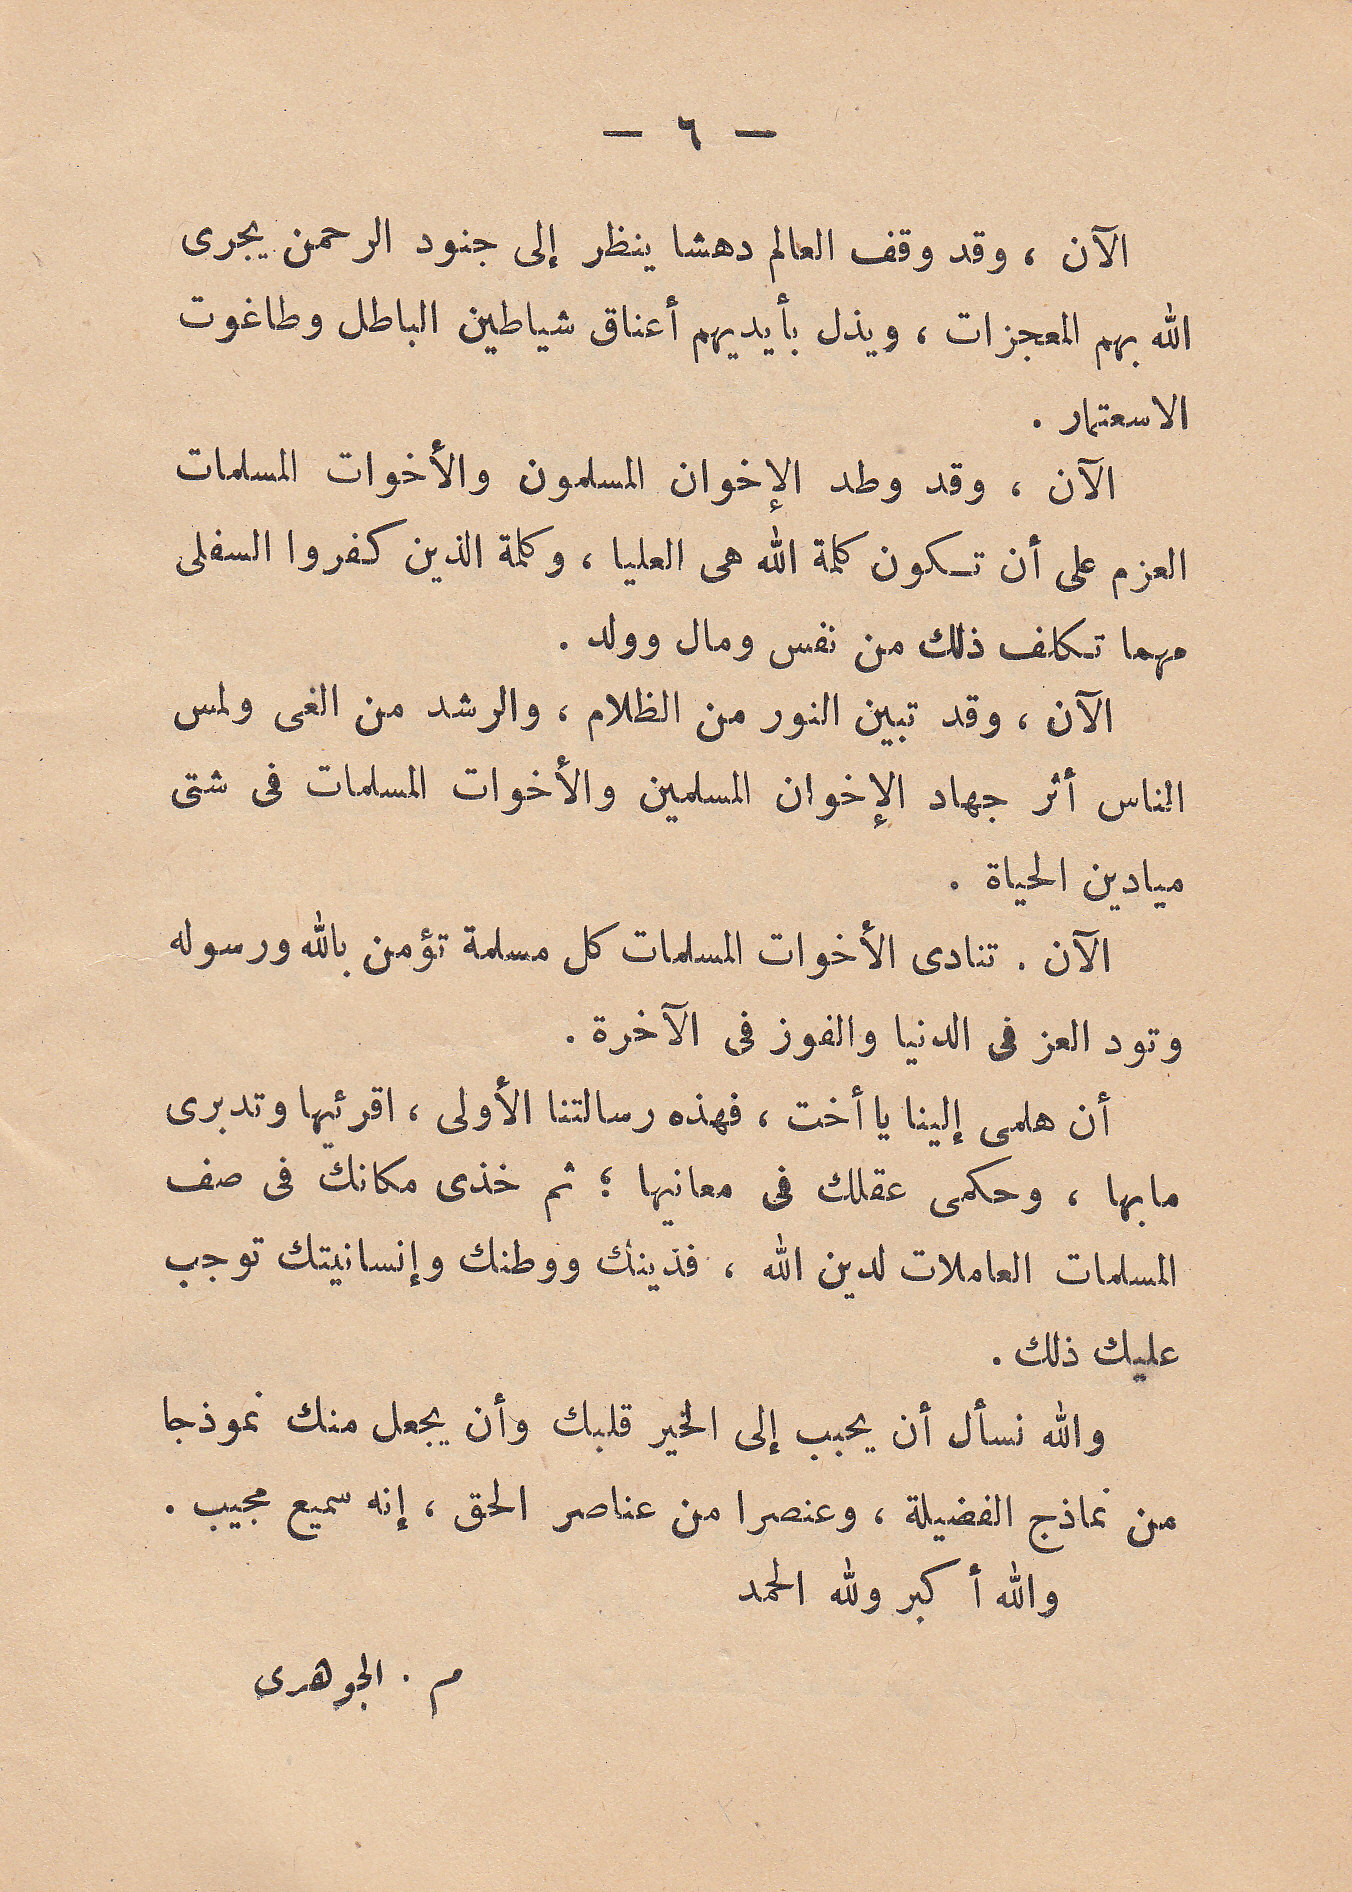 — ٦ —
الآن ، وقد وقف العالم دهشا ينظر إلى جنود الرحمن يجرى
الله بهم المعجزات ، ويذل بأيديهم أعناق شياطين الباطل وطاغوت
الاسعتمار .
الآن ، وقد وطد الإخوان المسلمون والأخوات المسلمات
العزم على أن تكون كلمة الله هى العليا ، وكلمة الذين كفروا السفلى
مهما تكلف ذلك من نفس ومال وولد .
الآن ، وقد تبين النور من الظلام ، والرشد من الغى ولمس
الناس أثر جهاد الإخوان المسلمين والأخوات المسلمات فى شتى
ميادين الحياة .
الآن . تنادى الأخوات المسلمات كل مسلمة تؤمن بالله ورسوله
وتود العز فى الدنيا والفوز فى الآخرة .
أن هلمى إلينا يا أخت ، فهذه رسالتنا الأولى ، اقرئيها وتدبرى
مابها ، وحكمى عقلك فى معانيها ؛ ثم خذى مكانك فى صف
المسلمات العاملات لدين الله ، فدينك ووطنك وإنسانيتك توجب
عليك ذلك .
والله نسأل أن يحبب إلى الخير قلبك وأن يجعل منك نموذجا
من نماذج الفضيلة ، وعنصرا من عناصر الحق ، إنه سميع مجيب .
والله أكبر ولله الحمد
م . الجوهرى